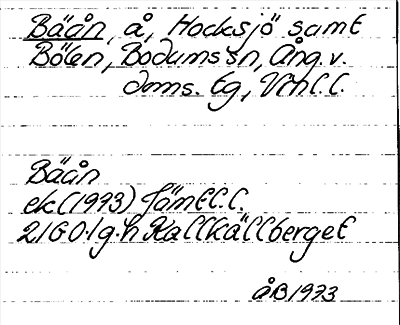 Bäån, å, Hocksjö samt
Bölen, Bodums sn, Ång. v.
doms. tg, Vnl. l.
Bäån
ek (1973) Jämtl. l.
21G0 1g-h Kallkällberget
åB 1973